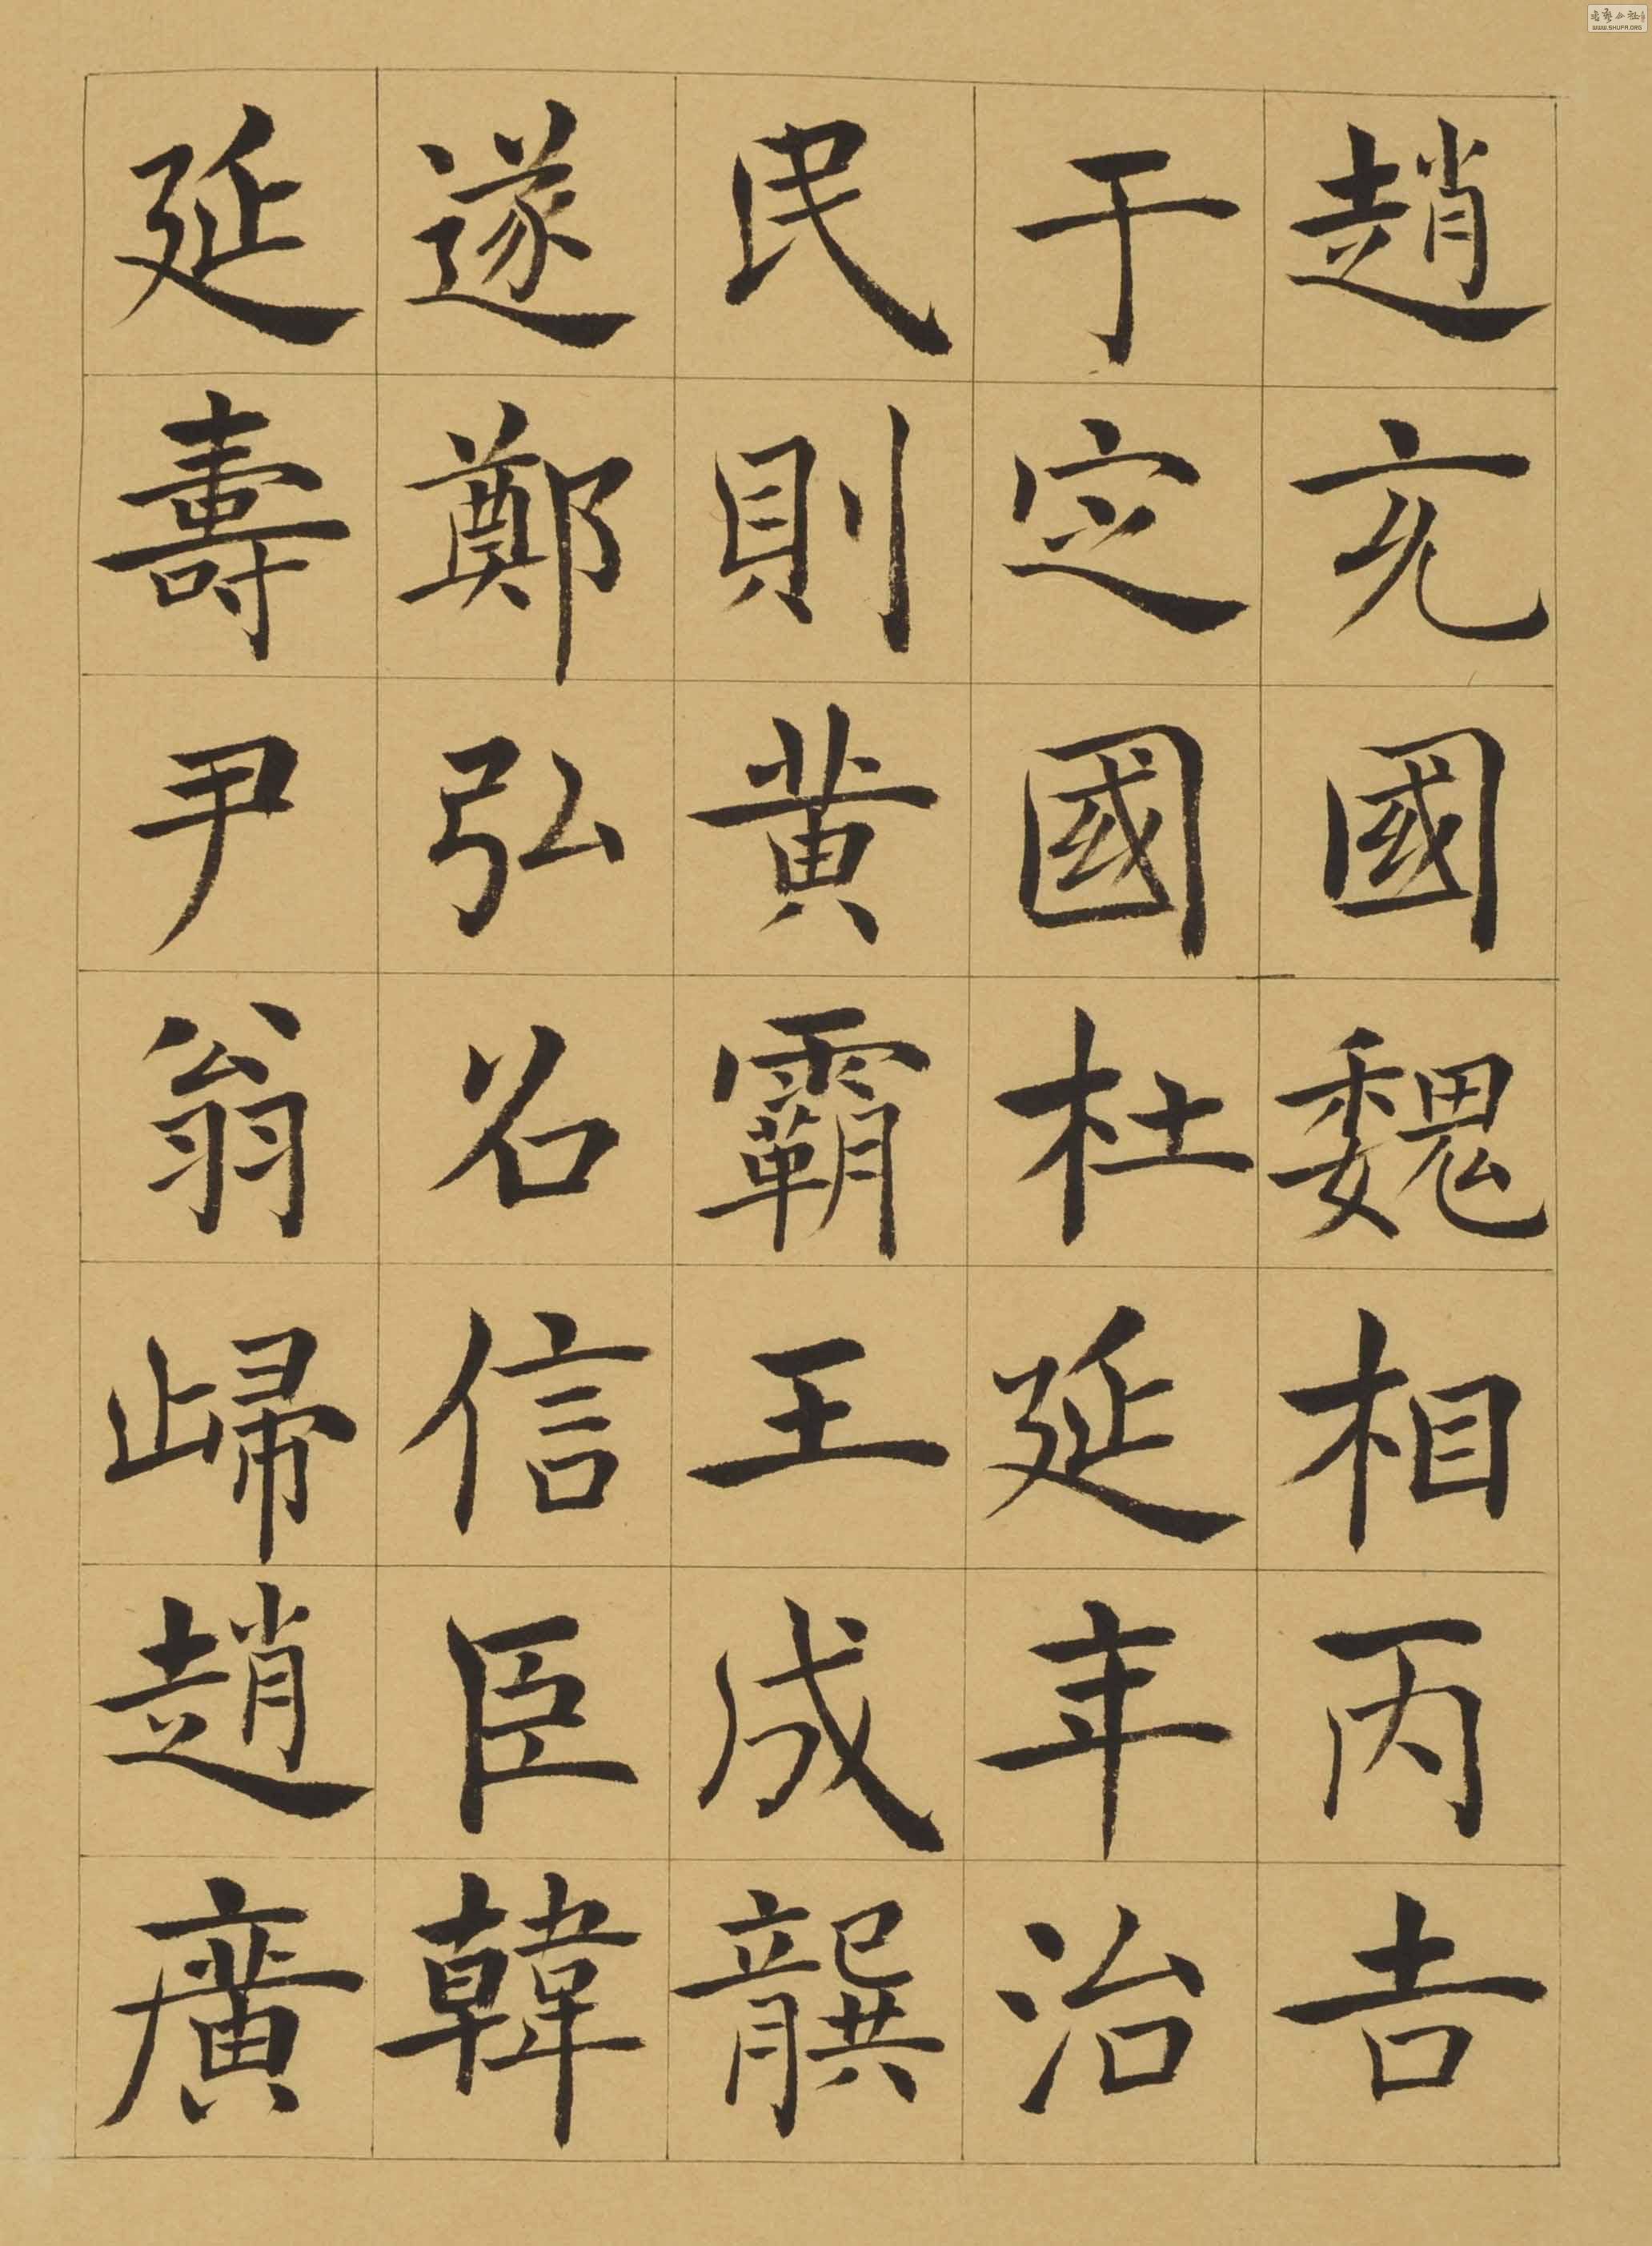 趙充國魏相丙吉
于定國杜延年治
民則黃霸王成龔
遂鄭弘召信臣韓
延壽尹翁歸趙廣
WWW.SHUFA.ORG